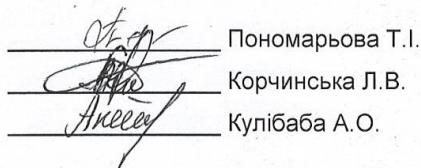 Пономарьова Т.І.
Корчинська Л.В.
Кулібаба А.О.